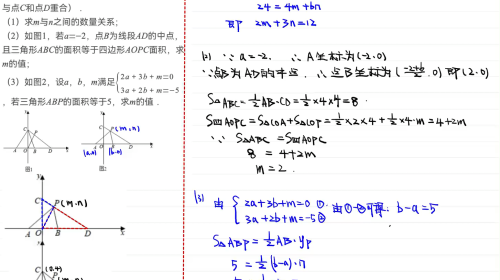 与点C和点D重合）.
（1）求m与n之间的数量关系；
（2）如图1，若a=−2，点B为线段AD的中点，
且三角形ABC的面积等于四边形AOPC面积，求
m的值；
（3）如图2，设a，b，m满足{2a+3b+m=0
3a+2b+m=−5
，若三角形ABP的面积等于5，求m的值.
C
P
A O B D x
图1
C
P(m,n)
A O B D x
(a,0) (b,0)
图2
C
P(m,n)
A B D x
C (0,4)
24 = 4m+6n
即 2m+3n=12
(2) ∵ a=-2, ∴ A坐标为(-2,0)
∴ 点B坐标为(, 0) 即(2,0)
S△ABC=½AB·CO=½×4×4=8.
S四AOPC=S△COA+S△COP=½×2×4+½×4·m=4+2m
∵ S△ABC=S四AOPC
8 = 4+2m
m=2.
(3) 由 {2a+3b+m=0 ① 由①-②可得: b-a=5
3a+2b+m=-5 ②
S△ABP=½AB·yp
5=½(b-a)·n